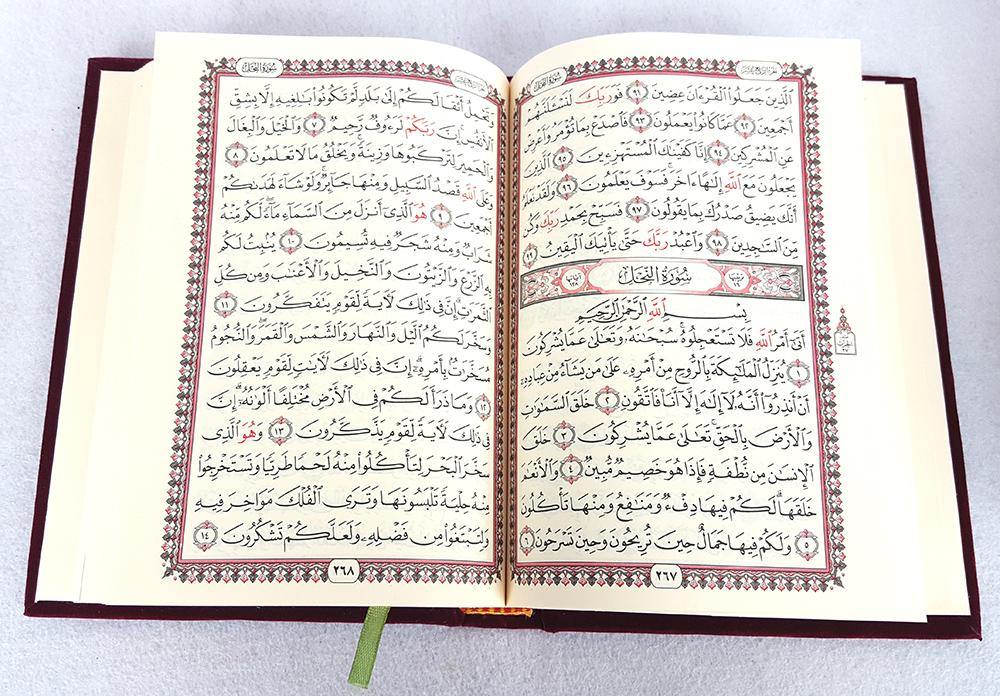 سورة النحل
الجزء الرابع عشر
ٱلَّذِينَ جَعَلُوا۟ ٱلْقُرْءَانَ عِضِينَ ٩١ فَوَرَبِّكَ لَنَسْـَٔلَنَّهُمْ
أَجْمَعِينَ ٩٢ عَمَّا كَانُوا۟ يَعْمَلُونَ ٩٣ فَٱصْدَعْ بِمَا تُؤْمَرُ وَأَعْرِضْ
عَنِ ٱلْمُشْرِكِينَ ٩٤ إِنَّا كَفَيْنَٰكَ ٱلْمُسْتَهْزِءِينَ ٩٥ ٱلَّذِينَ
يَجْعَلُونَ مَعَ ٱللَّهِ إِلَٰهًا ءَاخَرَ فَسَوْفَ يَعْلَمُونَ ٩٦ وَلَقَدْ نَعْلَمُ
أَنَّكَ يَضِيقُ صَدْرُكَ بِمَا يَقُولُونَ ٩٧ فَسَبِّحْ بِحَمْدِ رَبِّكَ وَكُن
مِّنَ ٱلسَّٰجِدِينَ ٩٨ وَٱعْبُدْ رَبَّكَ حَتَّىٰ يَأْتِيَكَ ٱلْيَقِينُ ٩٩
ترتيبها ١٦ سُورَةُ النَّحْلِ آياتها ١٢٨
بِسْمِ ٱللَّهِ ٱلرَّحْمَٰنِ ٱلرَّحِيمِ
أَتَىٰٓ أَمْرُ ٱللَّهِ فَلَا تَسْتَعْجِلُوهُ سُبْحَٰنَهُۥ وَتَعَٰلَىٰ عَمَّا يُشْرِكُونَ
١ يُنَزِّلُ ٱلْمَلَٰٓئِكَةَ بِٱلرُّوحِ مِنْ أَمْرِهِۦ عَلَىٰ مَن يَشَآءُ مِنْ عِبَادِهِۦٓ
أَنْ أَنذِرُوٓا۟ أَنَّهُۥ لَآ إِلَٰهَ إِلَّآ أَنَا۠ فَٱتَّقُونِ ٢ خَلَقَ ٱلسَّمَٰوَٰتِ
وَٱلْأَرْضَ بِٱلْحَقِّ تَعَٰلَىٰ عَمَّا يُشْرِكُونَ ٣ خَلَقَ
ٱلْإِنسَٰنَ مِن نُّطْفَةٍ فَإِذَا هُوَ خَصِيمٌ مُّبِينٌ ٤ وَٱلْأَنْعَٰمَ
خَلَقَهَا لَكُمْ فِيهَا دِفْءٌ وَمَنَٰفِعُ وَمِنْهَا تَأْكُلُونَ
٥ وَلَكُمْ فِيهَا جَمَالٌ حِينَ تُرِيحُونَ وَحِينَ تَسْرَحُونَ ٦
٢٦٧
سورة النحل
الجزء الرابع عشر
وَتَحْمِلُ أَثْقَالَكُمْ إِلَىٰ بَلَدٍ لَّمْ تَكُونُوا۟ بَٰلِغِيهِ إِلَّا بِشِقِّ
ٱلْأَنفُسِ إِنَّ رَبَّكُمْ لَرَءُوفٌ رَّحِيمٌ ٧ وَٱلْخَيْلَ وَٱلْبِغَالَ
وَٱلْحَمِيرَ لِتَرْكَبُوهَا وَزِينَةً وَيَخْلُقُ مَا لَا تَعْلَمُونَ ٨
وَعَلَى ٱللَّهِ قَصْدُ ٱلسَّبِيلِ وَمِنْهَا جَآئِرٌ وَلَوْ شَآءَ لَهَدَىٰكُمْ
أَجْمَعِينَ ٩ هُوَ ٱلَّذِىٓ أَنزَلَ مِنَ ٱلسَّمَآءِ مَآءً لَّكُم مِّنْهُ
شَرَابٌ وَمِنْهُ شَجَرٌ فِيهِ تُسِيمُونَ ١٠ يُنۢبِتُ لَكُم
بِهِ ٱلزَّرْعَ وَٱلزَّيْتُونَ وَٱلنَّخِيلَ وَٱلْأَعْنَٰبَ وَمِن كُلِّ
ٱلثَّمَرَٰتِ إِنَّ فِى ذَٰلِكَ لَءَايَةً لِّقَوْمٍ يَتَفَكَّرُونَ ١١
وَسَخَّرَ لَكُمُ ٱلَّيْلَ وَٱلنَّهَارَ وَٱلشَّمْسَ وَٱلْقَمَرَ وَٱلنُّجُومُ
مُسَخَّرَٰتٌۢ بِأَمْرِهِۦٓ إِنَّ فِى ذَٰلِكَ لَءَايَٰتٍ لِّقَوْمٍ يَعْقِلُونَ
١٢ وَمَا ذَرَأَ لَكُمْ فِى ٱلْأَرْضِ مُخْتَلِفًا أَلْوَٰنُهُۥٓ إِنَّ
فِى ذَٰلِكَ لَءَايَةً لِّقَوْمٍ يَذَّكَّرُونَ ١٣ وَهُوَ ٱلَّذِى
سَخَّرَ ٱلْبَحْرَ لِتَأْكُلُوا۟ مِنْهُ لَحْمًا طَرِيًّا وَتَسْتَخْرِجُوا۟
مِنْهُ حِلْيَةً تَلْبَسُونَهَا وَتَرَى ٱلْفُلْكَ مَوَاخِرَ فِيهِ
وَلِتَبْتَغُوا۟ مِن فَضْلِهِۦ وَلَعَلَّكُمْ تَشْكُرُونَ ١٤
٢٦٨